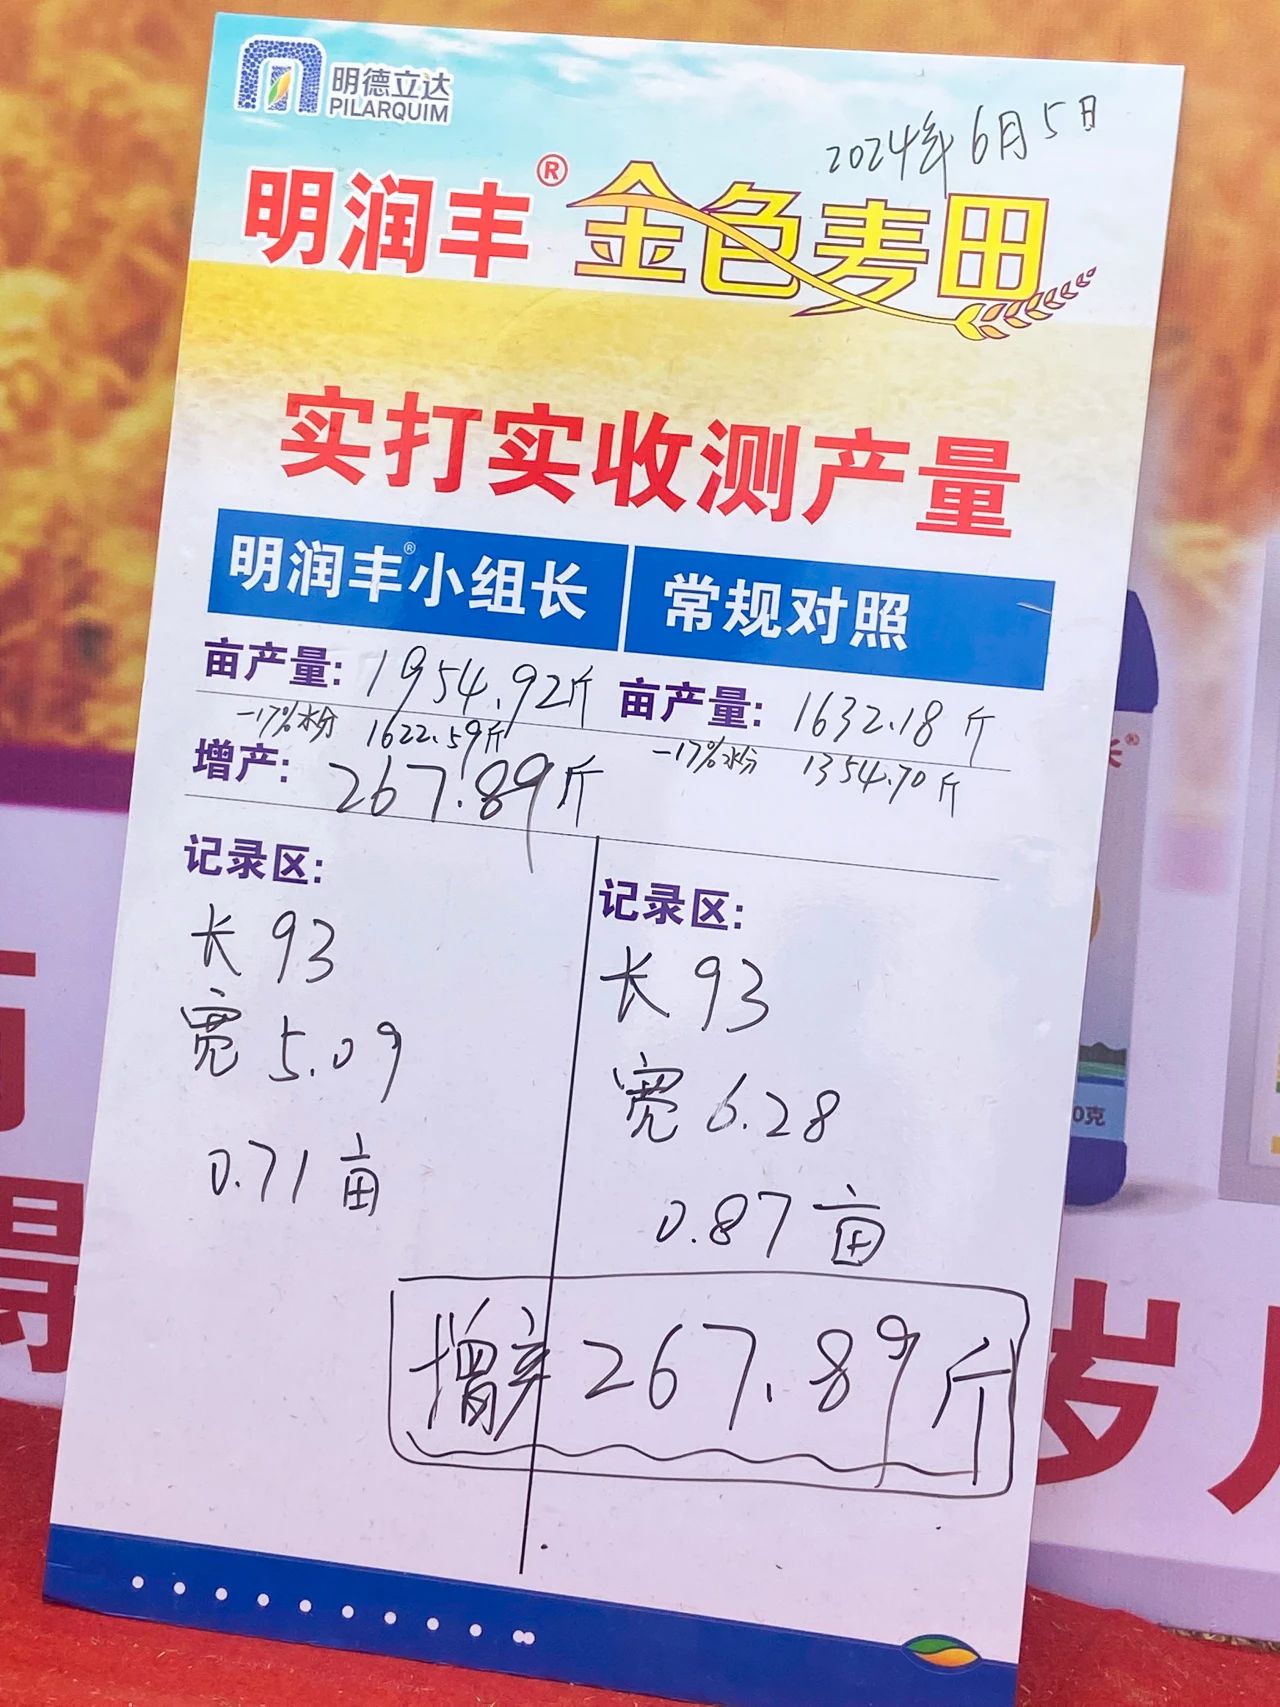 明德立达
PILARQUIM
2024年6月5日
明润丰® 金色麦田
实打实收测产量
明润丰®小组长
常规对照
亩产量: 1954.92斤
亩产量: 1632.18斤
-17%水分 1622.59斤
-17%水分 1354.70斤
增产: 267.89斤
记录区:
长 93
宽 5.09
0.71亩
记录区:
长 93
宽 6.28
0.87亩
增产 267.89斤
长®
0克
岁